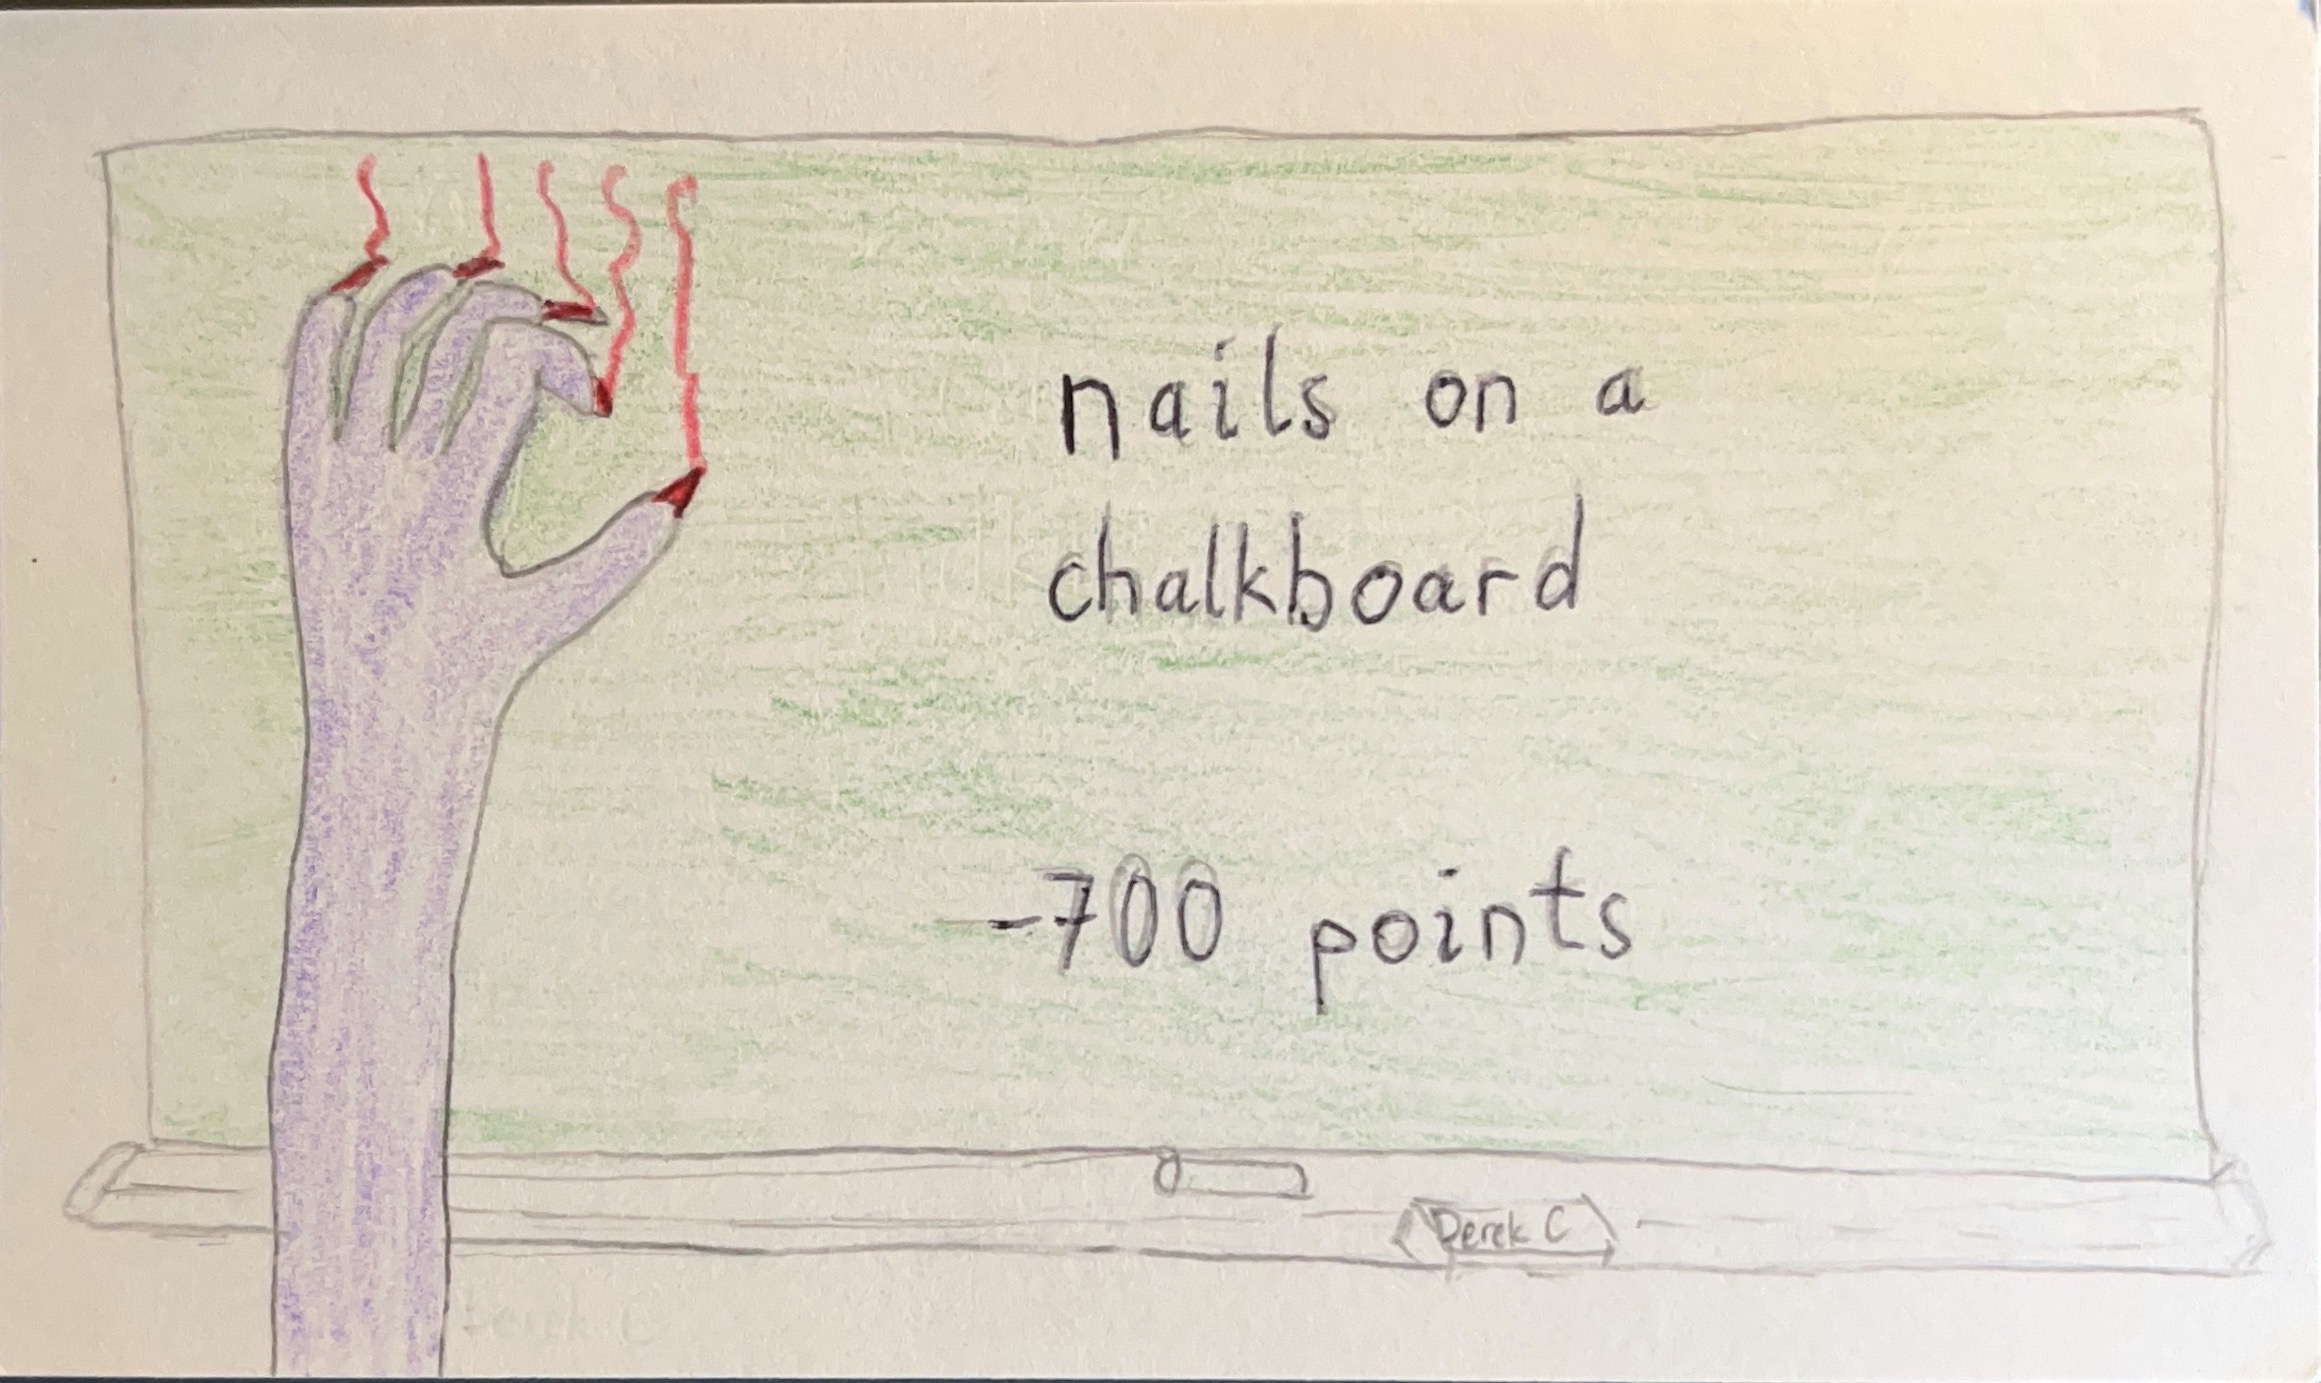 nails on a
chalkboard
-700 points
Derek C
erek C